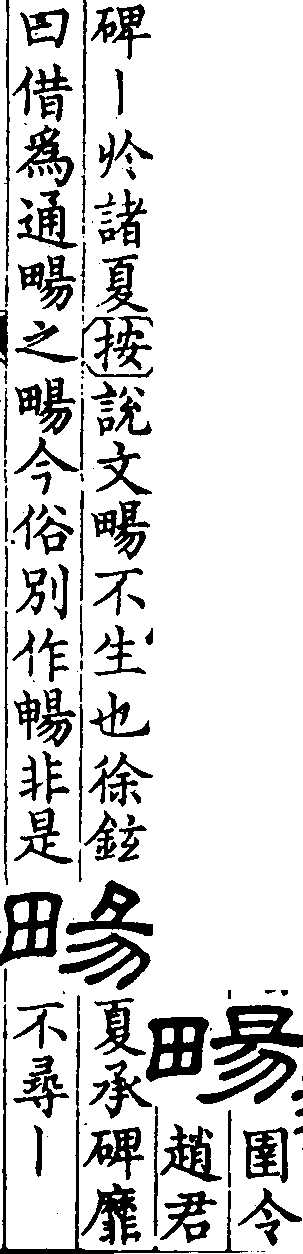 畼
圉令
趙君
碑丨於諸夏按說文畼不生也徐鉉
曰借爲通畼之畼今俗別作暢非是
畼
夏承碑靡
不尋丨